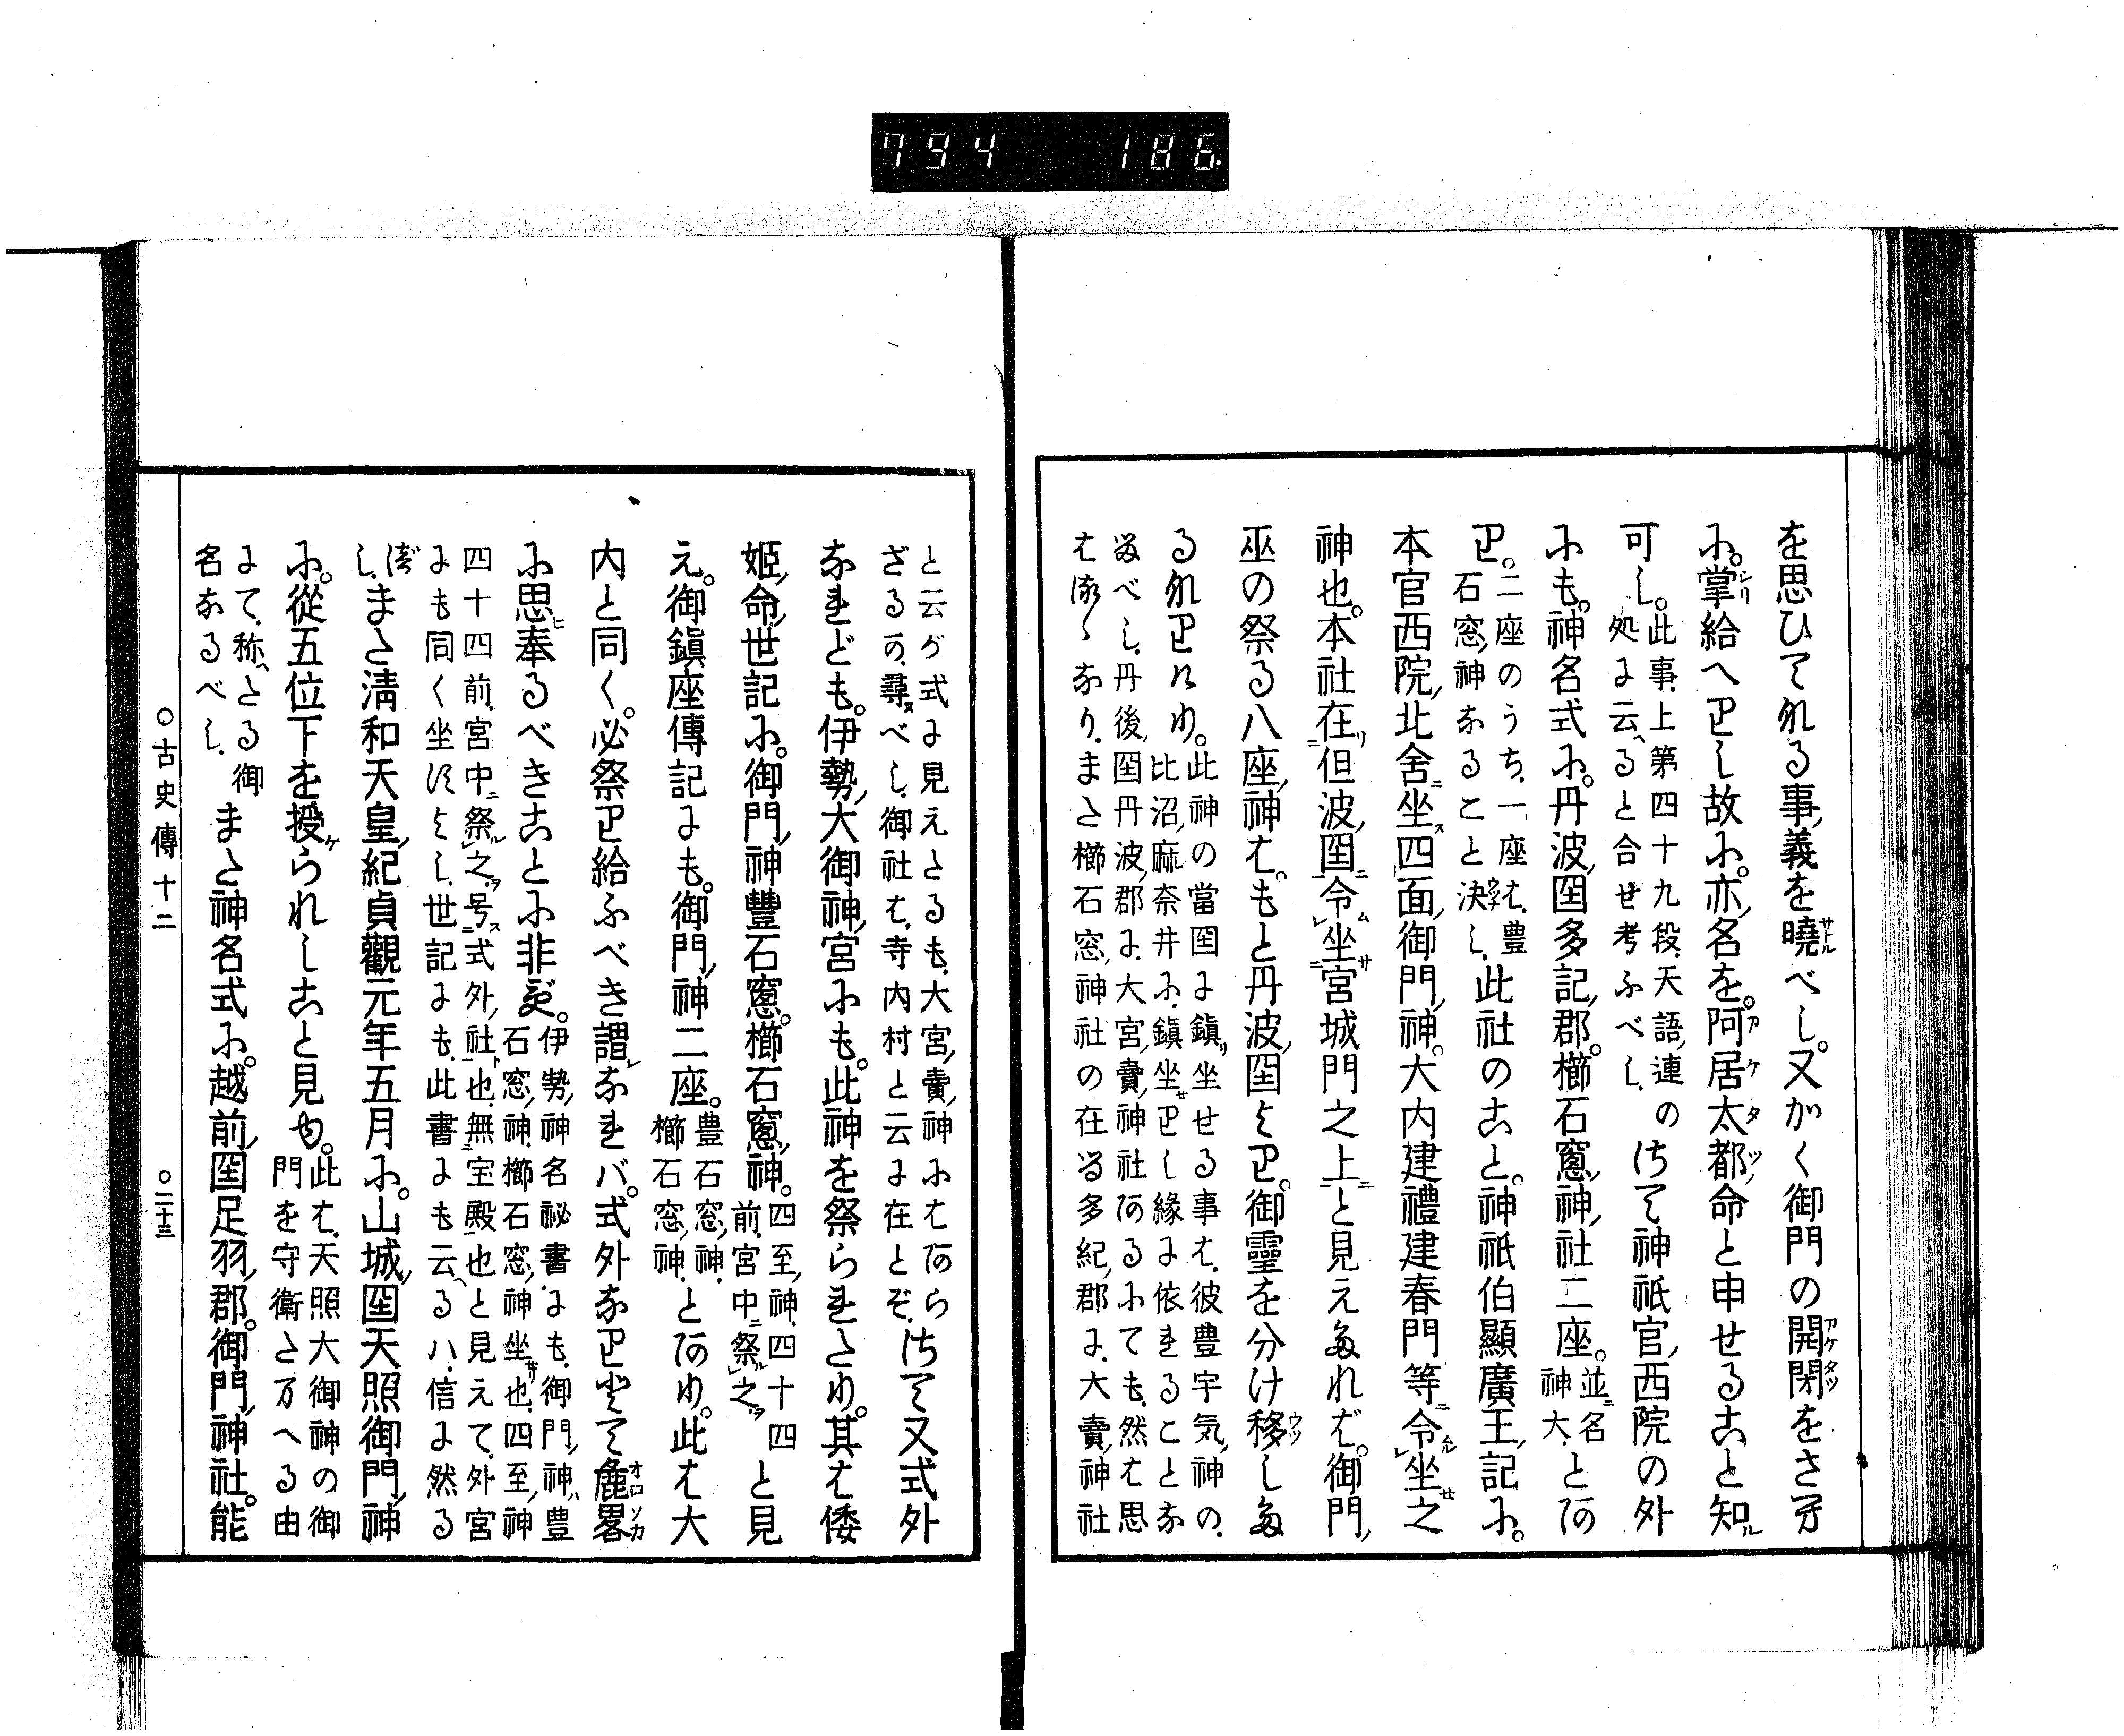 794 186
を思ひてれる事義を曉べし。又かく御門の開閉をさ万
に。掌給へりし故に。亦名を。阿居太都命と申せること知
可し。此事、上第四十九段、天語連の
処に云へると合せ考ふべし。
さて神祇官西院の外
にも。神名式に。丹波国多記郡。櫛石窻神社二座。並名
神大。とあ
り。二座のうち、一座は、豊
石窓神なること決し。
此社のこと。神祇伯顯廣王記に。
本官西院北舍坐四面御門神。大内建禮建春門等令坐之
神也。本社在但波国令坐宮城門之上と見えたれば。御門
巫の祭る八座神は。もと丹波国より。御靈を分け移した
るなりけり。此神の當国に鎭坐せる事は、彼豊宇気神の、
比沼麻奈井に、鎭坐りし縁に依れることな
るべし、丹後国丹波郡に、大宮賣神社あるにても、然は思
はるゝなり、また櫛石窓神社の在る多紀郡に、大賣神社
と云が式に見えたるも、大宮賣神にはあら
ざるか、尋べし、御社は、寺内村と云に在とぞ、
さて又式外
なれども。伊勢大御神宮にも。此神を祭られたり。其は倭
姫命世記に。御門神豐石窻。櫛石窻神。四至神、四十四
前、宮中祭之
と見
え。御鎭座傳記にも。御門神二座。豊石窓神、
櫛石窓神、
とあり。此は大
内と同く。必祭り給ふべき謂なれバ。式外なりとて麁畧
に思奉るべきことに非ず。伊勢神名祕書にも、御門神ハ豊
石窓神、櫛石窓神坐也、四至神
四十四前、宮中祭之、号式外社也、無宝殿也と見えて、外宮
にも同く坐けらし、世記にも、此書にも云へるハ、信に然る
し、また淸和天皇紀貞觀元年五月に。山城国天照御門神
に。從五位下を授られしこと見ゆ。此は、天照大御神の御
門を守衛たまへる由
にて、称へたる御
名なるべし、
また神名式に。越前国足羽郡。御門神社。能
○古史傳十二 ○二十三